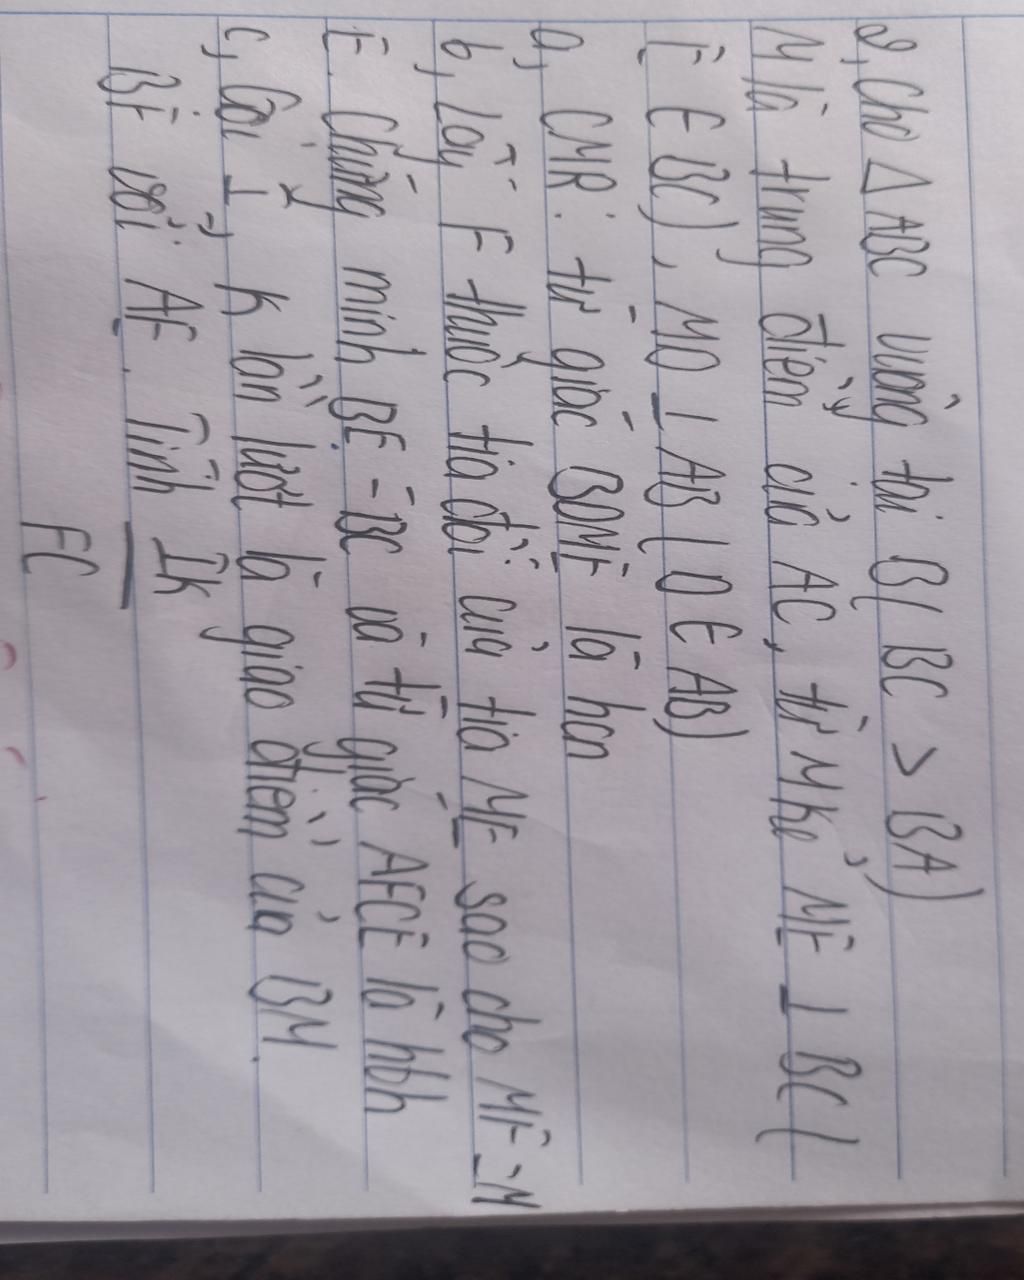 2, Cho △ ABC vuông tại B ( BC > BA)
M là trung điểm của AC, từ M kẻ ME ⊥ BC (
E ∈ BC), MD ⊥ AB ( D ∈ AB)
a, CMR: tứ giác BDME là hcn
b, Lấy F thuộc tia đối của tia ME sao cho MF = M
E. Chứng minh BE = BC và tứ giác AFCE là hbh
c, Gọi I, K lần lượt là giao điểm của BM,
BF với AE. Tính IK
FC